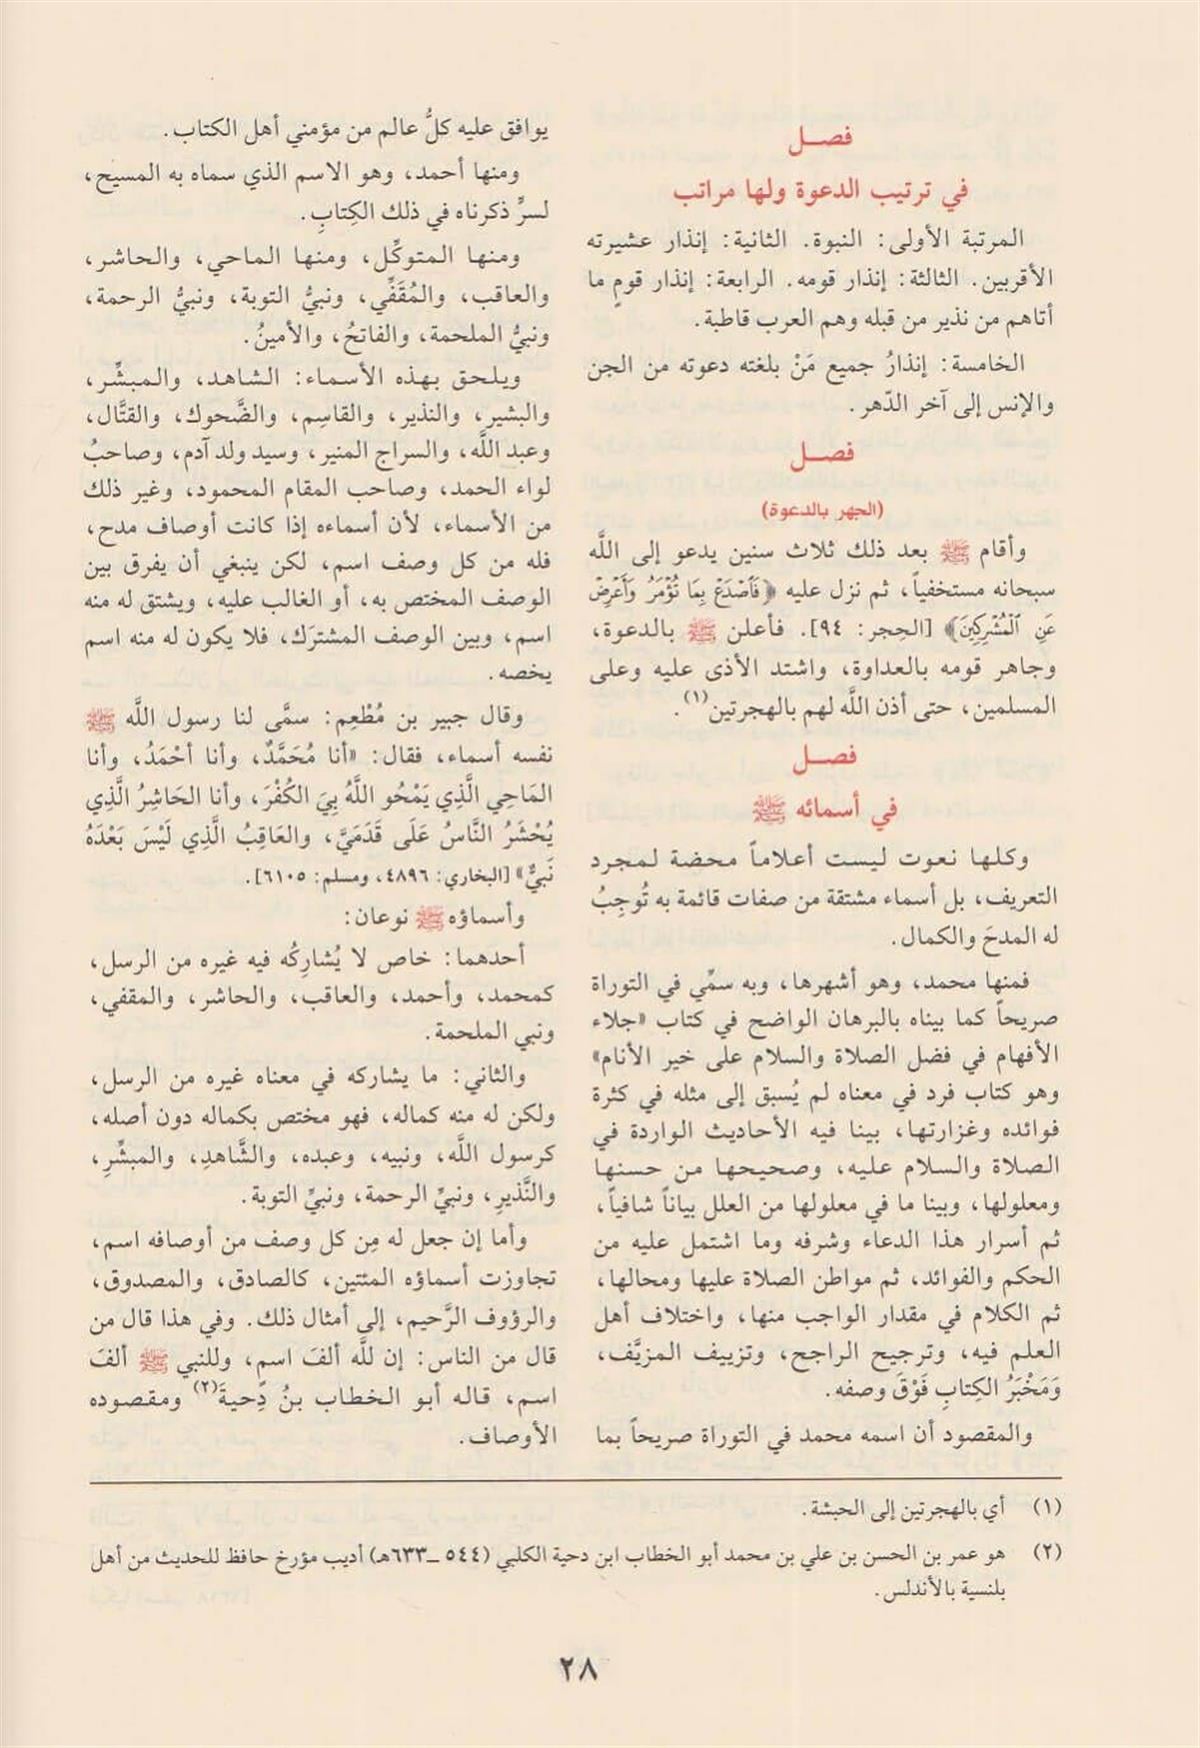 فصــل
في ترتيب الدعوة ولها مراتب
المرتبة الأولى: النبوة. الثانية: إنذار عشيرته
الأقربين. الثالثة: إنذار قومه. الرابعة: إنذار قومٍ ما
أتاهم من نذير من قبله وهم العرب قاطبة.
الخامسة: إنذارُ جميع مَنْ بلغته دعوته من الجن
والإنس إلى آخر الدّهر.
فصــل
(الجهر بالدعوة)
وأقام ﷺ بعد ذلك ثلاث سنين يدعو إلى اللَّه
سبحانه مستخفياً، ثم نزل عليه ﴿فَٱصْدَعْ بِمَا تُؤْمَرُ وَأَعْرِضْ
عَنِ ٱلْمُشْرِكِينَ﴾ [الحِجر: ٩٤]. فأعلن ﷺ بالدعوة،
وجاهر قومه بالعداوة، واشتد الأذى عليه وعلى
المسلمين، حتى أذن اللَّه لهم بالهجرتين(١).
فصــل
في أسمائه ﷺ
وكلها نعوت ليست أعلاماً محضة لمجرد
التعريف، بل أسماء مشتقة من صفات قائمة به تُوجِبُ
له المدحَ والكمال.
فمنها محمد، وهو أشهرها، وبه سمِّي في التوراة
صريحاً كما بيناه بالبرهان الواضح في كتاب «جلاء
الأفهام في فضل الصلاة والسلام على خير الأنام»
وهو كتاب فرد في معناه لم يُسبق إلى مثله في كثرة
فوائده وغزارتها، بينا فيه الأحاديث الواردة في
الصلاة والسلام عليه، وصحيحها من حسنها
ومعلولها، وبينا ما في معلولها من العلل بياناً شافياً،
ثم أسرار هذا الدعاء وشرفه وما اشتمل عليه من
الحكم والفوائد، ثم مواطن الصلاة عليها ومحالها،
ثم الكلام في مقدار الواجب منها، واختلاف أهل
العلم فيه، وترجيح الراجح، وتزييف المزيَّف،
وَمَخْبَرُ الكِتابِ فَوْقَ وصفه.
والمقصود أن اسمه محمد في التوراة صريحاً بما
يوافق عليه كلُّ عالم من مؤمني أهل الكتاب.
ومنها أحمد، وهو الاسم الذي سماه به المسيح،
لسرٍّ ذكرناه في ذلك الكِتابِ.
ومنها المتوكِّل، ومنها الماحي، والحاشر،
والعاقب، والمُقَفِّي، ونبيُّ التوبة، ونبيُّ الرحمة،
ونبيُّ الملحمة، والفاتحُ، والأمينُ.
ويلحق بهذه الأسماء: الشاهد، والمبشِّر،
والبشير، والنذير، والقاسِم، والضَّحوك، والقتَّال،
وعبد اللَّه، والسراج المنير، وسيد ولد آدم، وصاحبُ
لواء الحمد، وصاحب المقام المحمود، وغير ذلك
من الأسماء، لأن أسماءه إذا كانت أوصاف مدح،
فله من كل وصف اسم، لكن ينبغي أن يفرق بين
الوصف المختص به، أو الغالب عليه، ويشتق له منه
اسم، وبين الوصف المشترَك، فلا يكون له منه اسم
يخصه.
وقال جبير بن مُطْعِم: سمَّى لنا رسول اللَّه ﷺ
نفسه أسماء، فقال: «أنا مُحَمَّدٌ، وأنا أحْمَدُ، وأنا
المَاحِي الَّذِي يَمْحُو اللَّهُ بِيَ الكُفْرَ، وأنا الحَاشِرُ الَّذِي
يُحْشَرُ النَّاسُ عَلَى قَدَمَيَّ، والعَاقِبُ الَّذِي لَيْسَ بَعْدَهُ
نَبِيٌّ» [البخاري: ٤٨٩٦، ومسلم: ٦١٠٥].
وأسماؤه ﷺ نوعان:
أحدهما: خاص لا يُشارِكُه فيه غيره من الرسل،
كمحمد، وأحمد، والعاقب، والحاشر، والمقفي،
ونبي الملحمة.
والثاني: ما يشاركه في معناه غيره من الرسل،
ولكن له منه كماله، فهو مختص بكماله دون أصله،
كرسول اللَّه، ونبيه، وعبده، والشَّاهدِ، والمبشِّرِ،
والنَّذيرِ، ونبيِّ الرحمة، ونبيِّ التوبة.
وأما إن جعل له مِن كل وصف من أوصافه اسم،
تجاوزت أسماؤه المئتين، كالصادق، والمصدوق،
والرؤوف الرَّحيم، إلى أمثال ذلك. وفي هذا قال من
قال من الناس: إن للَّه ألفَ اسمٍ، وللنبي ﷺ ألفَ
اسم، قاله أبو الخطاب بنُ دِحيةَ(٢) ومقصوده
الأوصاف.
(١) أي بالهجرتين إلى الحبشة.
(٢) هو عمر بن الحسن بن علي بن محمد أبو الخطاب ابن دحية الكلبي (٥٤٤ ـ ٦٣٣هـ) أديب مؤرخ حافظ للحديث من أهل
بلنسية بالأندلس.
٢٨